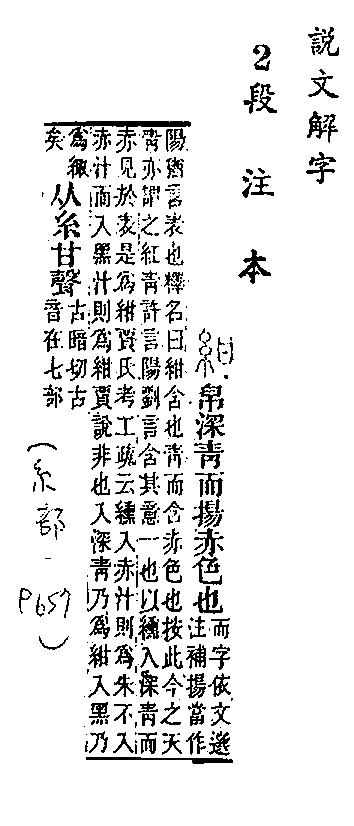 説文解字
2段注本
紺帛深青而揚赤色也而字依文選
注補揚當作
陽猶言表也釋名曰紺含也青而含赤色也按此今之天
青亦謂之紅青許言陽劉言含其意一也以纁入深青而
赤見於表是爲紺賈氏考工疏云纁入赤汁則爲朱不入
赤汁而入黑汁則爲紺賈說非也入深青乃爲紺入黑乃
爲緅
矣
从糸甘聲古暗切古
音在七部
(糸部-P657)